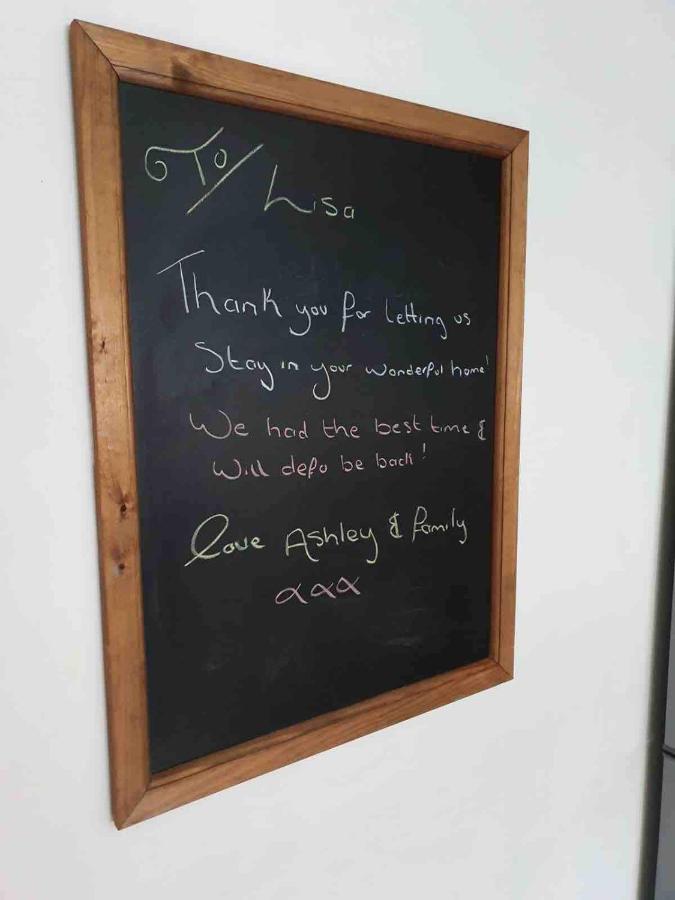 To/ Lisa
Thank you for letting us
Stay in your wonderful home!
We had the best time &
Will defo be back!
Love Ashley & family
xxx